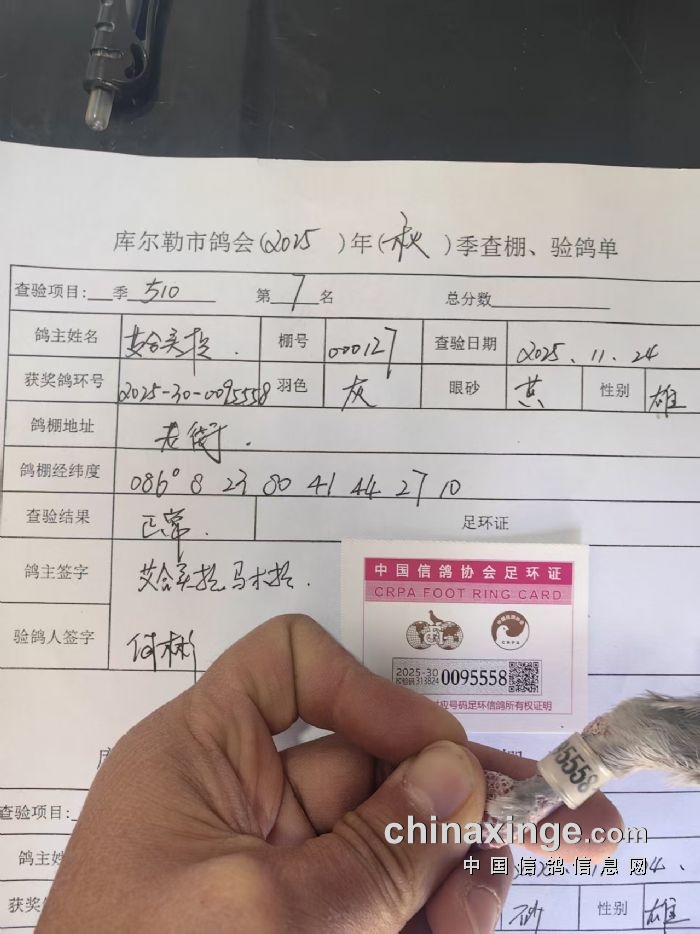 库尔勒市鸽会(2025)年(秋)季查棚、验鸽单
查验项目:__季 510 第 7 名 总分数
鸽主姓名 棚号 000127 查验日期 2025.11.24
获奖鸽环号 2025-30-0095558 羽色 灰 眼砂 黄 性别 雄
鸽棚地址 老街.
鸽棚经纬度 086° 8 23 80 41 44 27 10
查验结果 正常. 足环证
鸽主签字
验鸽人签字 何彬
中国信鸽协会足环证
CRPA FOOT RING CARD
CRPA
2025-30
校验码313824 0095558
对应号码足环信鸽所有权证明
95558
查验项目:
鸽主姓
获奖鸽
砂 性别 雄
chinaxinge.com
中国信鸽信息网